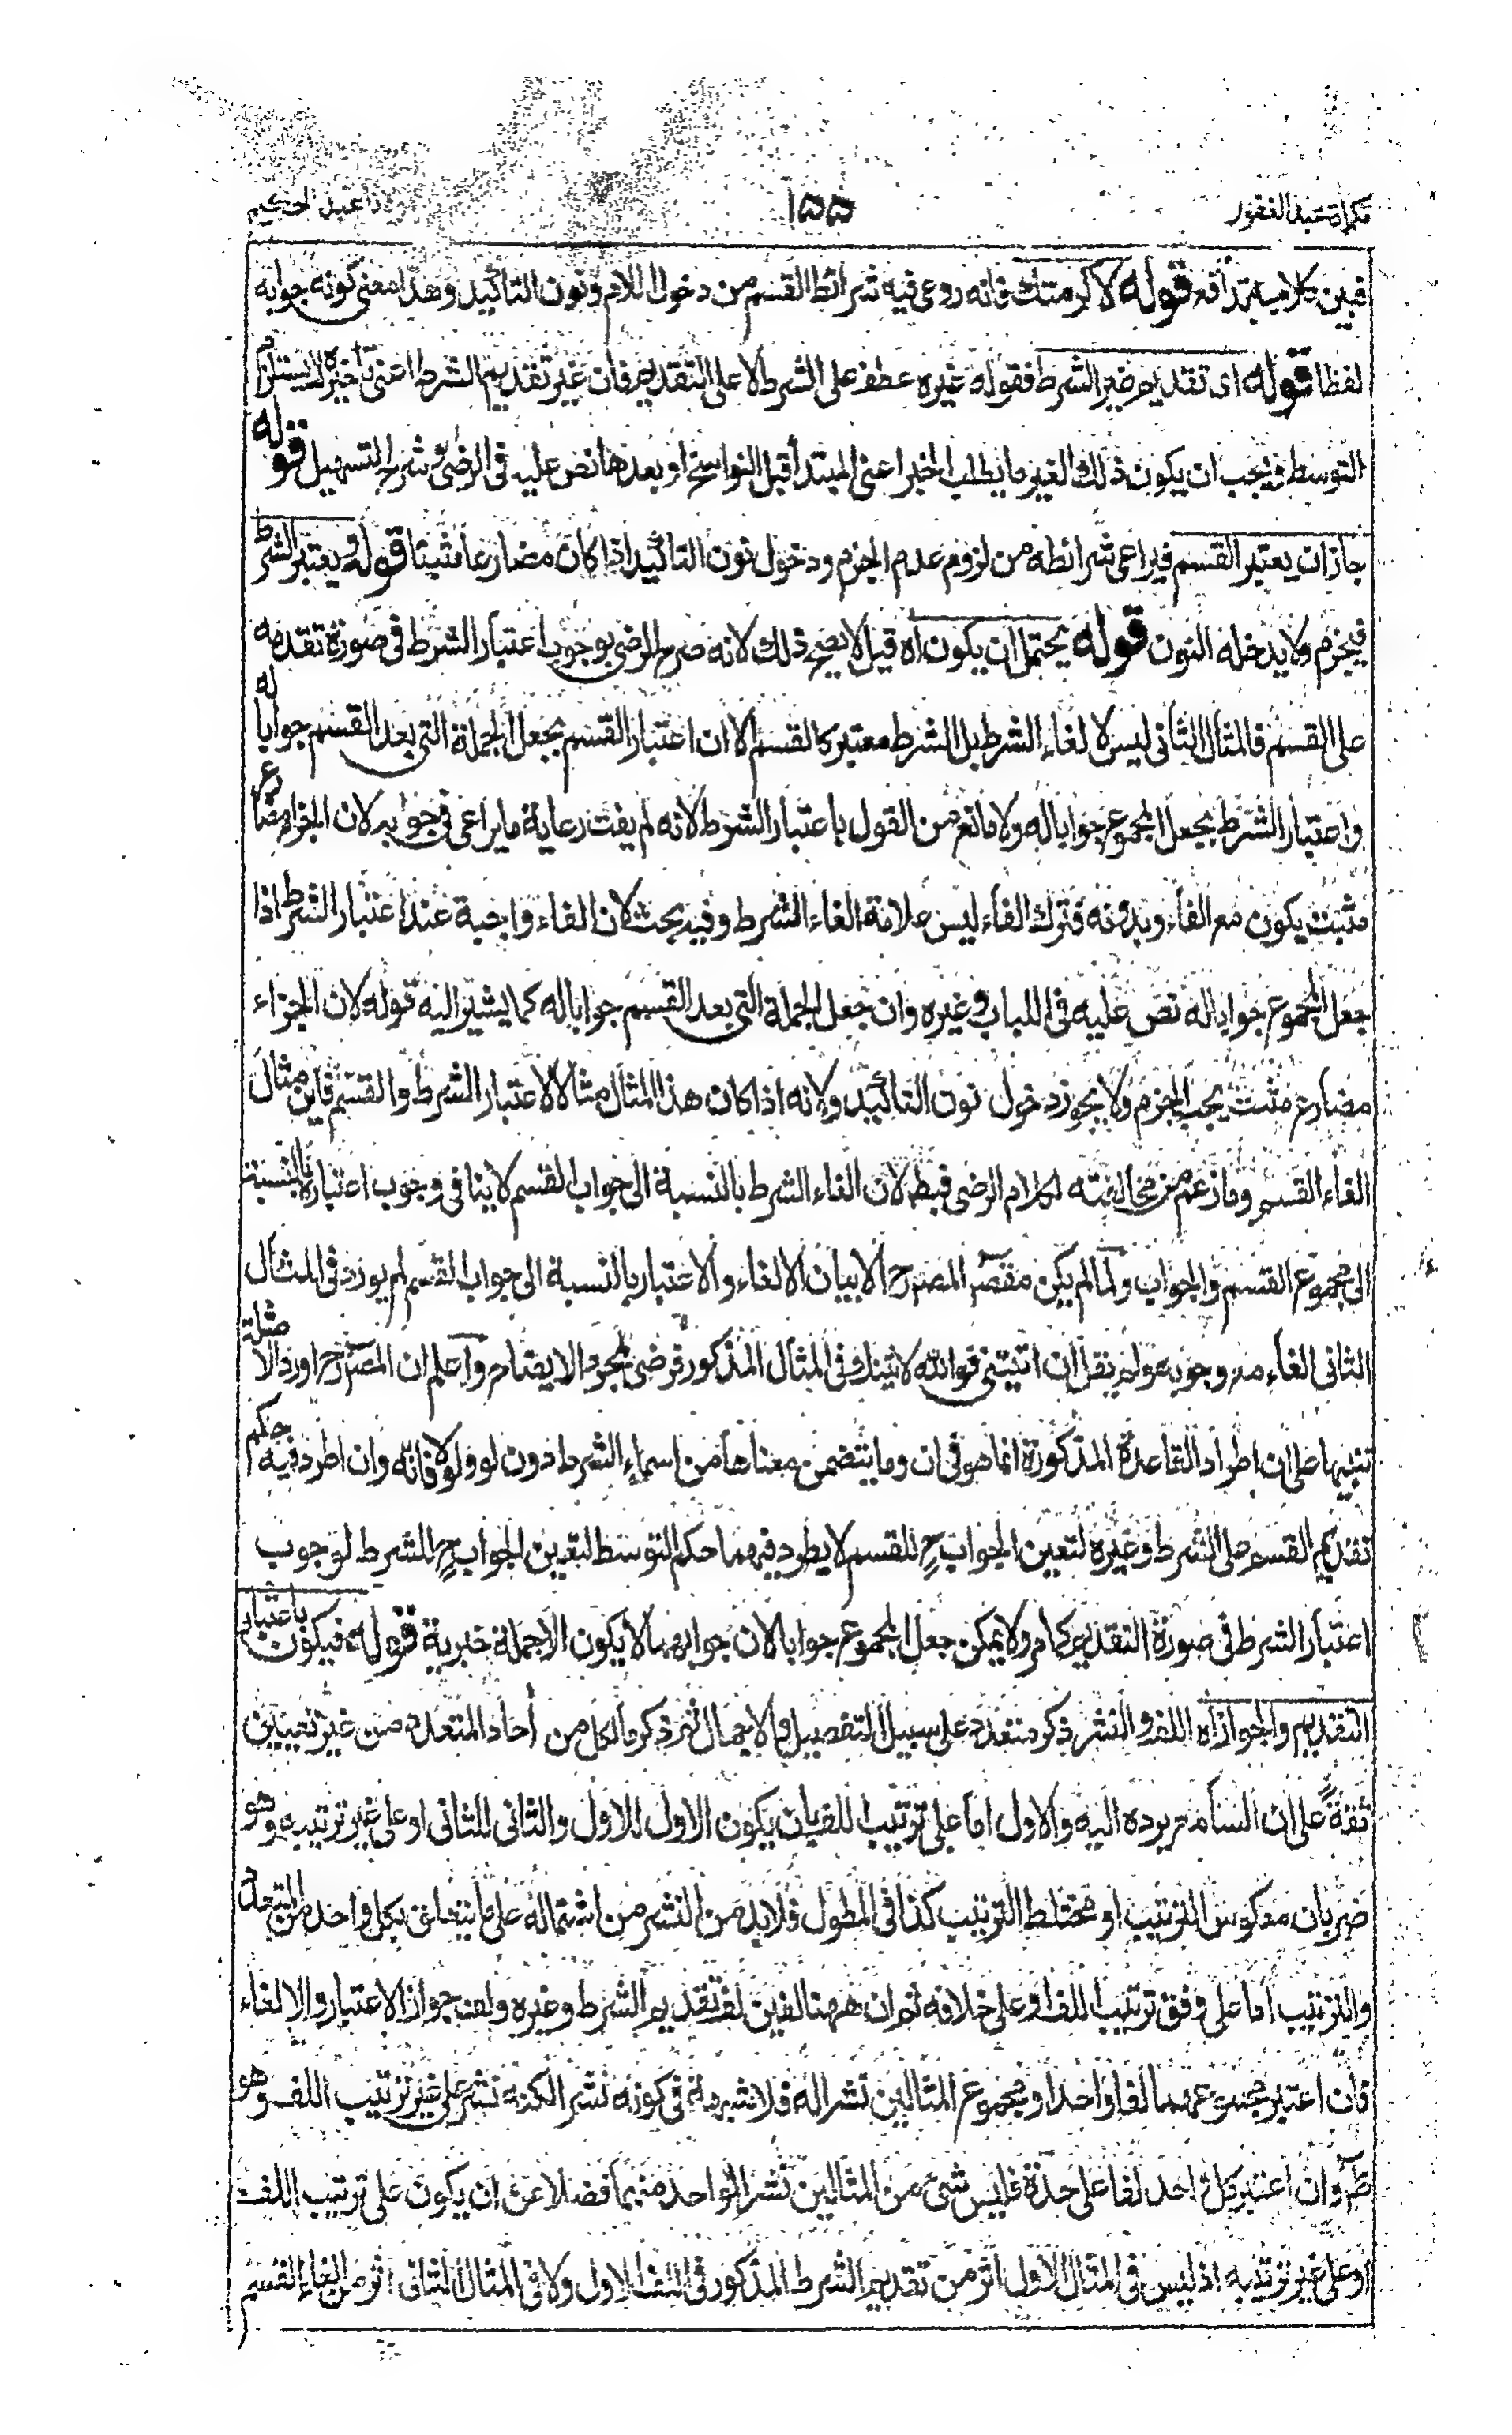 تكملة عبد الغفور ١٥٥ عبد الحكيم
فبين كلاميه تدافع قوله لاكرمتك فانه روعي فيه شرائط القسم من دخول اللام ونون التاكيد وهذا معنى كونه جوابه
لفظا قوله اى تقديم غير الشرط فقوله غيره عطف على الشرط لا على التقديم فان غير تقديم الشرط اعنى تاخيره لا يستلزم
التوسط ويجب ان يكون ذلك الغير ما يطلب الخبر اعنى المبتدأ قبل النواسخ او بعدها نص عليه فى الرضى وشرح التسهيل قوله
جاز ان يعتبر القسم فيراعى شرائطه من لزوم عدم الجزم ودخول نون التاكيد اذا كان مضارعا مثبتا قوله ويعتبر الشرط
فيجزم ولا يدخله النون قوله يحتمل ان يكون اه قيل لا يصح ذلك لانه صرح الرضى بوجوب اعتبار الشرط فى صورة تقدمه
على القسم فالمثال الثانى ليس لالغاء الشرط بل الشرط معتبر كالقسم الا ان اعتبار القسم بجعل الجملة التى بعد القسم جوابا له
واعتبار الشرط بجعل المجموع جوابا له ولا مانع من القول باعتبار الشرط لانه لم يفت رعاية ما يراعى فى جوابه لان الجزاء مضارع
مثبت يكون مع الفاء وبدونه فترك الفاء ليس علامة الغاء الشرط وفيه بحث لان الفاء واجبة عند اعتبار الشرط اذا
جعل المجموع جوابا له نص عليه فى اللباب وغيره وان جعل الجملة التى بعد القسم جوابا له كما يشير اليه قوله لان الجزاء
مضارع مثبت يجب الجزم ولا يجوز دخول نون التاكيد ولانه اذا كان هذا المثال مثالا لاعتبار الشرط والقسم فاين مثال
الغاء القسم وما زعم من مخالفته لكلام الرضى فبط لان الغاء الشرط بالنسبة الى جواب القسم لا ينافى وجوب اعتباره بالنسبة
الى مجموع القسم والجواب ولما لم يكن مقصد المصرح الا بيان الالغاء والاعتبار بالنسبة الى جواب القسم لم يورد فى المثال
الثانى الفاء مع وجوبه ولم يقل ان اتيتنى فوالله لاتينك فى المثال المذكور فرضى بمجرد الايضاح واعلم ان المصرح اورد الامثلة
تنبيها على ان اطراد القاعدة المذكورة انما هو فى ان وما يتضمن معناها من اسماء الشرط دون لو ولولا فانه وان اطرد فيه حكم
تقديم القسم على الشرط وغيره لتعين الجواب ح للقسم لا يطرد فيهما حكم التوسط لتعين الجواب ح للشرط لوجوب
اعتبار الشرط فى صورة التقديم كما مر ولا يمكن جعل المجموع جوابا لان جوابهما لا يكون الا جملة خبرية قوله فيكون باعتبار
التقديم والجواز اه اللف والنشر ذكر متعدد على سبيل التفصيل والاجمال ثم ذكر ما لكل من أحاد المتعدد من غير تعيين
ثقة على ان السامع يرده اليه والاول اما على ترتيب اللف بان يكون الاول للاول والثانى للثانى او على غير ترتيبه وهو
ضربان معكوس الترتيب او مختلط الترتيب كذا فى المطول فلا بد من النشر من اشتماله على ما يتعلق بكل واحد من المتعدد
والترتيب اما على وفق ترتيب اللف او على خلافه ثم ان ههنا لفين لف تقديم الشرط وغيره ولف جواز الاعتبار والالغاء
فان اعتبر مجموعهما لفا واحدا ومجموع المثالين نشرا له فلا شبهة فى كونه نشرا لكنه نشر على غير ترتيب اللف وهو
ظ وان اعتبر كل واحد لفا على حدة فليس شئ من المثالين نشرا لواحد منهما فضلا عن ان يكون على ترتيب اللف
او على غير ترتيبه اذ ليس فى المثال الاول اثر من تقديم الشرط المذكور فى اللف الاول ولا فى المثال الثانى اثر من الغاء القسم